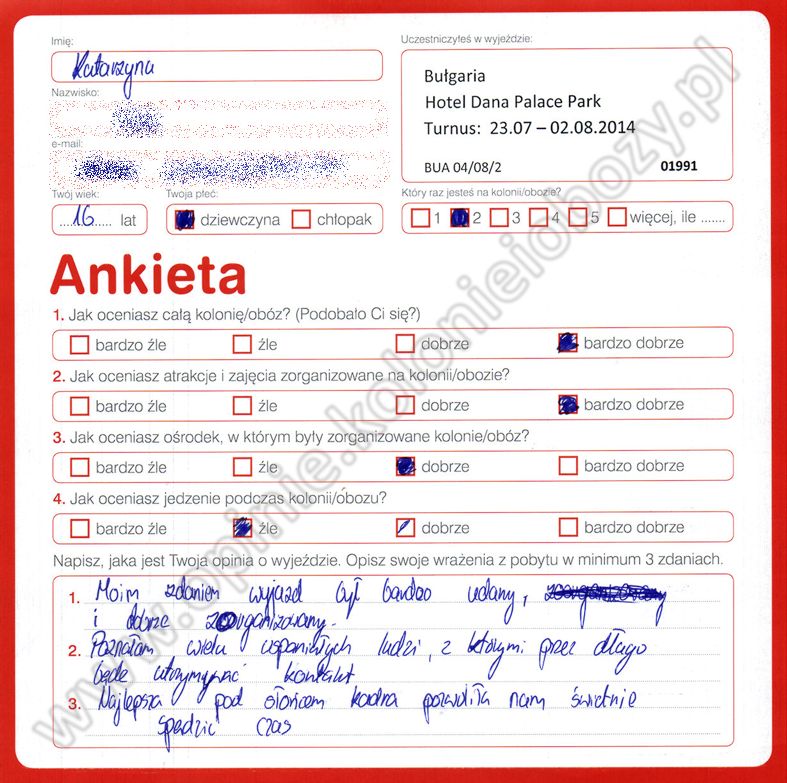 Imię:
Katarzyna
Nazwisko:
e-mail:
Twój wiek:
16 lat
Twoja płeć:
dziewczyna chłopak
Uczestniczyłeś w wyjeździe:
Bułgaria
Hotel Dana Palace Park
Turnus: 23.07 – 02.08.2014
BUA 04/08/2 01991
Który raz jesteś na kolonii/obozie?
1 2 3 4 5 więcej, ile .......
Ankieta
1. Jak oceniasz całą kolonię/obóz? (Podobało Ci się?)
bardzo źle źle dobrze bardzo dobrze
2. Jak oceniasz atrakcje i zajęcia zorganizowane na kolonii/obozie?
bardzo źle źle dobrze bardzo dobrze
3. Jak oceniasz ośrodek, w którym były zorganizowane kolonie/obóz?
bardzo źle źle dobrze bardzo dobrze
4. Jak oceniasz jedzenie podczas kolonii/obozu?
bardzo źle źle dobrze bardzo dobrze
Napisz, jaka jest Twoja opinia o wyjeździe. Opisz swoje wrażenia z pobytu w minimum 3 zdaniach.
1. Moim zdaniem wyjazd był bardzo udany,
i dobrze zorganizowany.
2. Poznałam wielu wspaniałych ludzi, z którymi przez długo
będę utrzymywać kontakt
3. Najlepsza pod słońcem kadra pozwoliła nam świetnie
spędzić czas
www.opinie.kolonieiobozy.pl